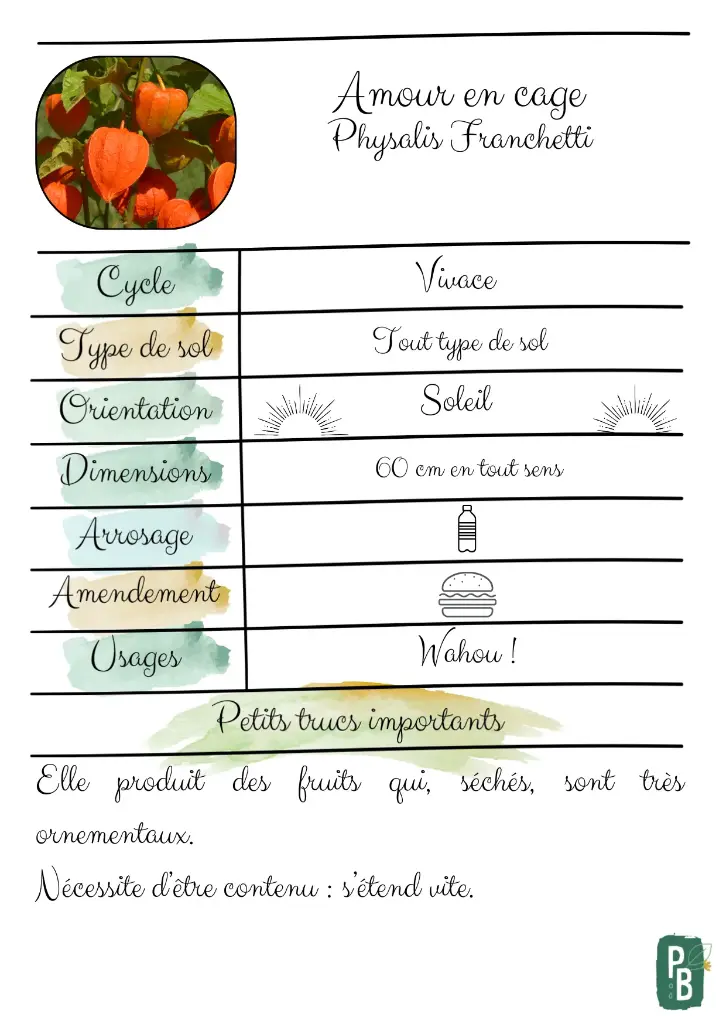 Amour en cage
Physalis Franchetti
Cycle Vivace
Type de sol Tout type de sol
Orientation Soleil
Dimensions 60 cm en tout sens
Arrosage
Amendement
Usages Wahou !
Petits trucs importants
Elle produit des fruits qui, séchés, sont très
ornementaux.
Nécessite d'être contenu : s'étend vite.
PB